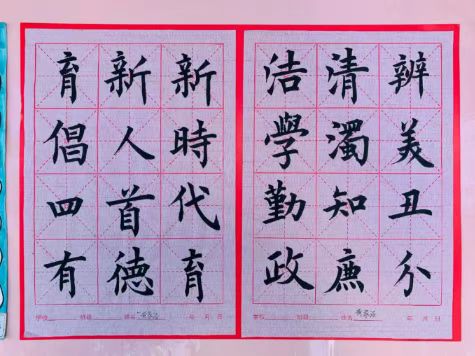 新時代育
新人首德
育倡四有
学校 班级 姓名 年 月 日
辨美丑分
清濁知廉
洁學勤政
学校 班级 姓名 年 月 日